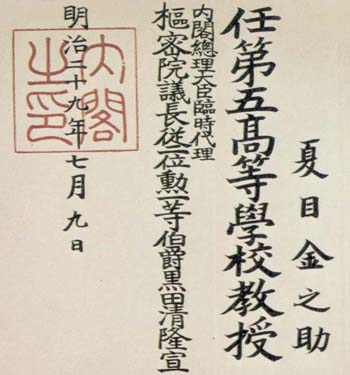 夏目金之助
任第五高等學校教授
内閣總理大臣臨時代理
樞密院議長從一位勲一等伯爵黒田清隆宣
明治二十九年七月九日
内閣之印